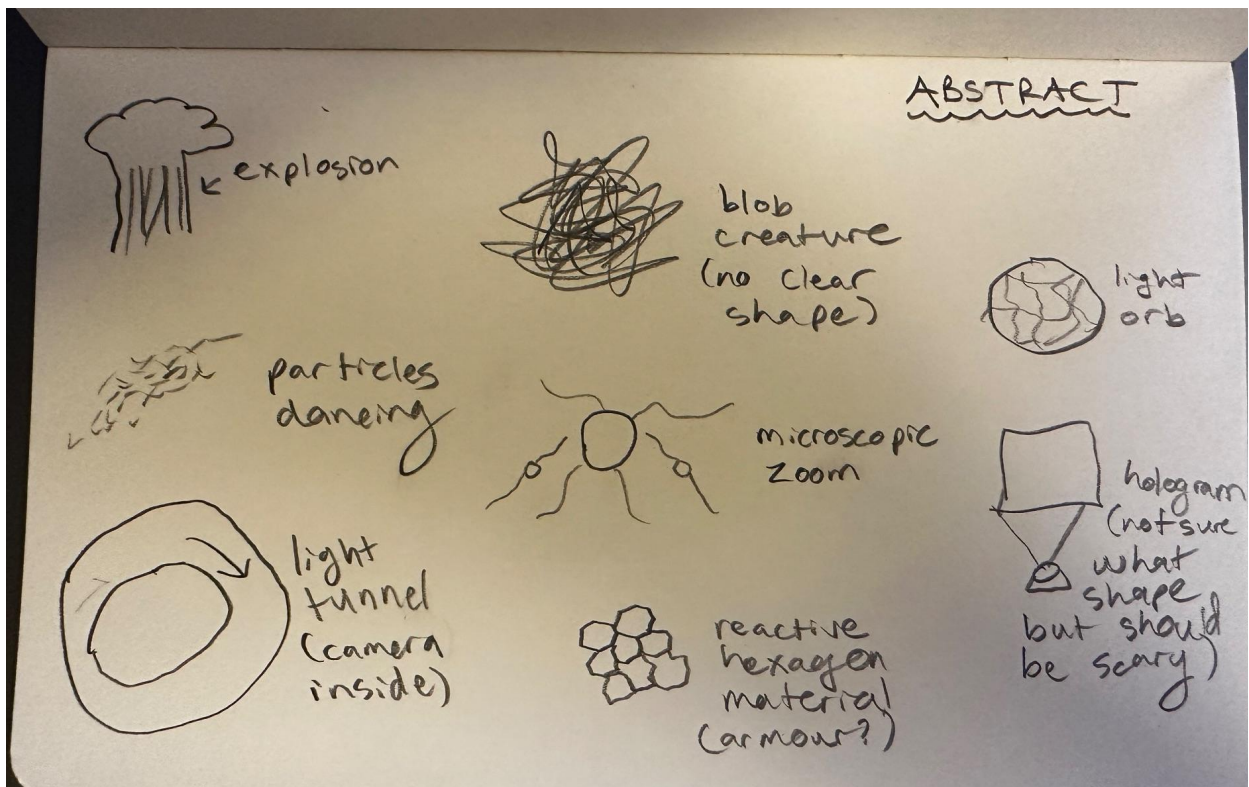 ABSTRACT
explosion
blob
creature
(no clear
shape)
light
orb
particles
dancing
microscopic
zoom
hologram
(not sure
what
shape
but should
be scary)
light
tunnel
(camera
inside)
reactive
hexagon
material
(armour?)